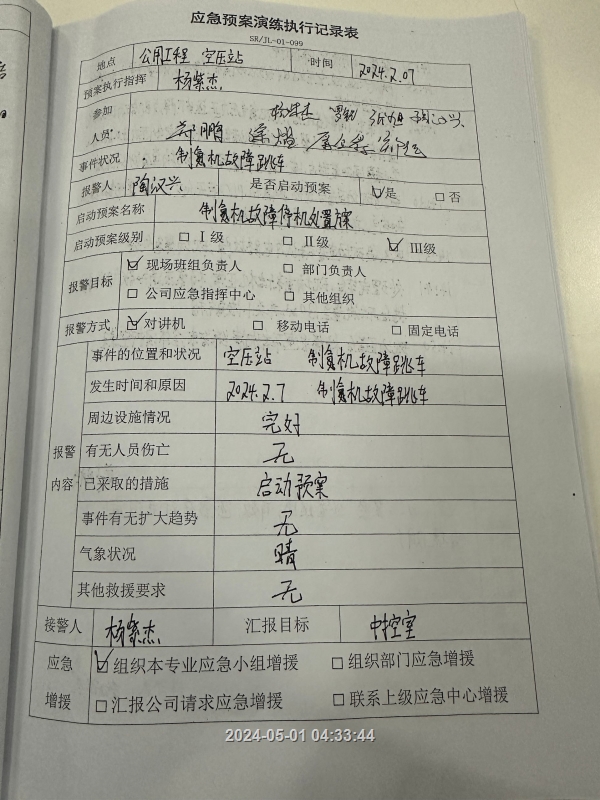 应急预案演练执行记录表
SR/JL-01-099
地点 公用工程 空压站 时间 2024.2.07
预案执行指挥 杨紫杰
参加
人员
事件状况 制氮机故障跳车
报警人 陶汉兴 是否启动预案 ☑是 □否
启动预案名称 制氮机故障停机处置方案
启动预案级别 □Ⅰ级 □Ⅱ级 ☑Ⅲ级
报警目标 ☑现场班组负责人 □部门负责人
□公司应急指挥中心 □其他组织
报警方式 ☑对讲机 □移动电话 □固定电话
事件的位置和状况 空压站 制氮机故障跳车
发生时间和原因 2024.2.7 制氮机故障跳车
周边设施情况 完好
报警 有无人员伤亡 无
内容 已采取的措施 启动预案
事件有无扩大趋势 无
气象状况 晴
其他救援要求 无
接警人 杨紫杰 汇报目标 中控室
应急 ☑组织本专业应急小组增援 □组织部门应急增援
增援 □汇报公司请求应急增援 □联系上级应急中心增援
2024-05-01 04:33:44